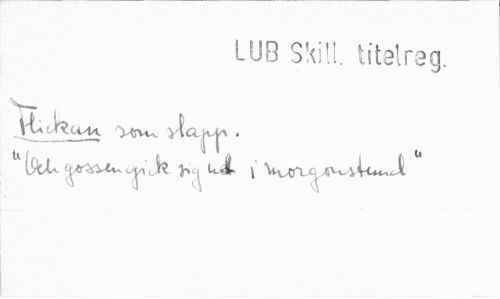 LUB Skill. titelreg.
Flickan som slapp.
"Och gossen gick sig ut i morgonstund"